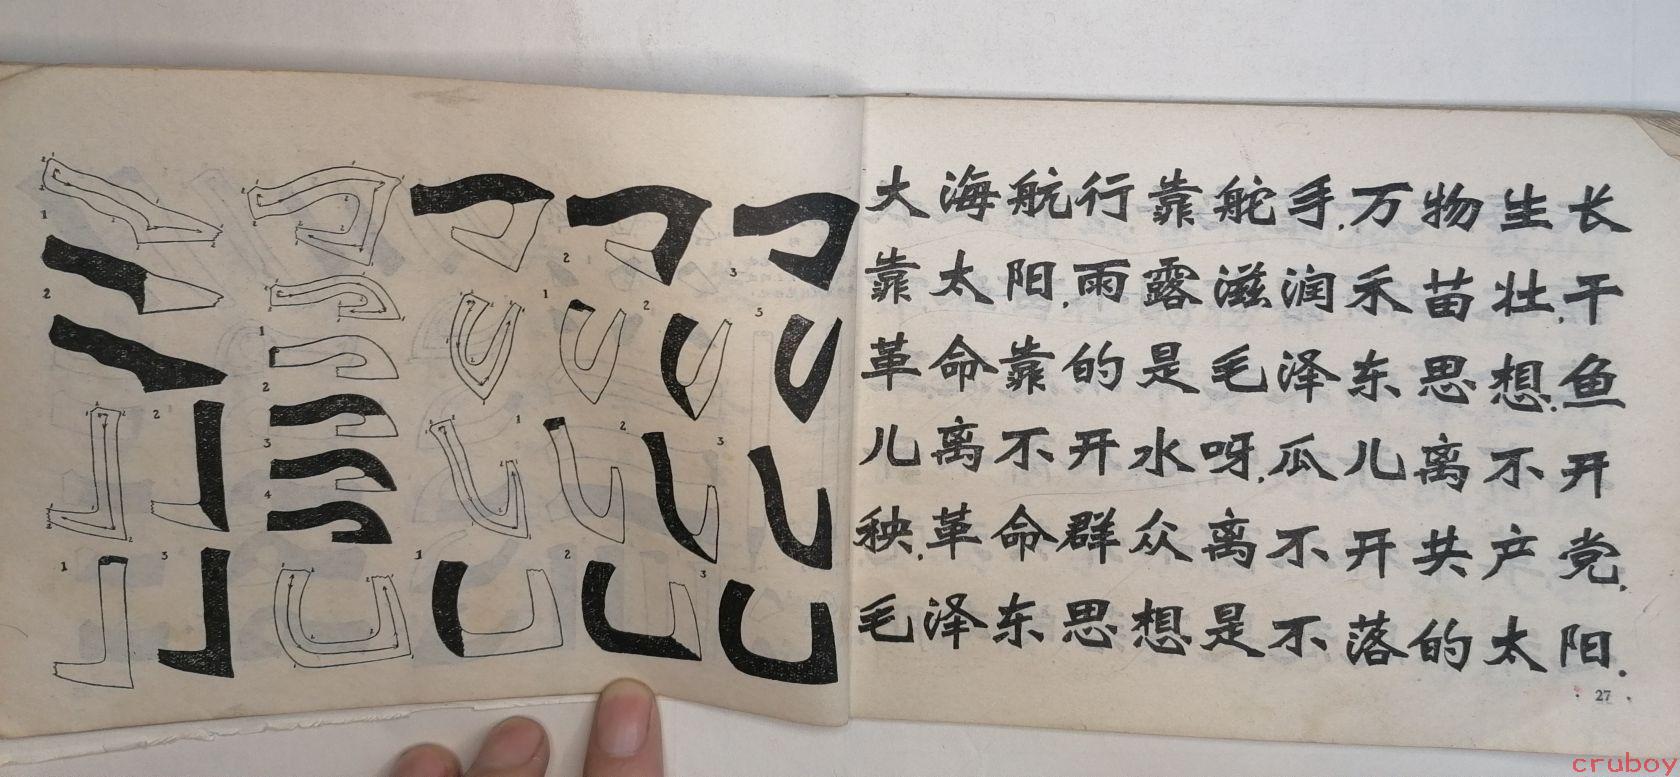 大海航行靠舵手,万物生长
靠太阳,雨露滋润禾苗壮,干
革命靠的是毛泽东思想.鱼
儿离不开水呀,瓜儿离不开
秧,革命群众离不开共产党,
毛泽东思想是不落的太阳.
27
cruboy